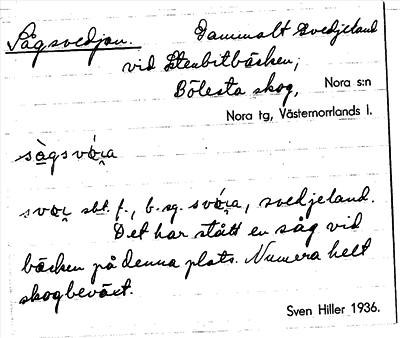 Sågsvedjan. Gammalt svedjeland
vid Stenbitbäcken,
Bölesta skog, Nora s:n
Nora tg, Västernorrlands l.
sàgsvó̱ra
svor sbt. f., b. sg. svóra, svedjeland.
Det har stått en såg vid
bäcken på denna plats. Numera helt
skogbeväxt.
Sven Hiller 1936.